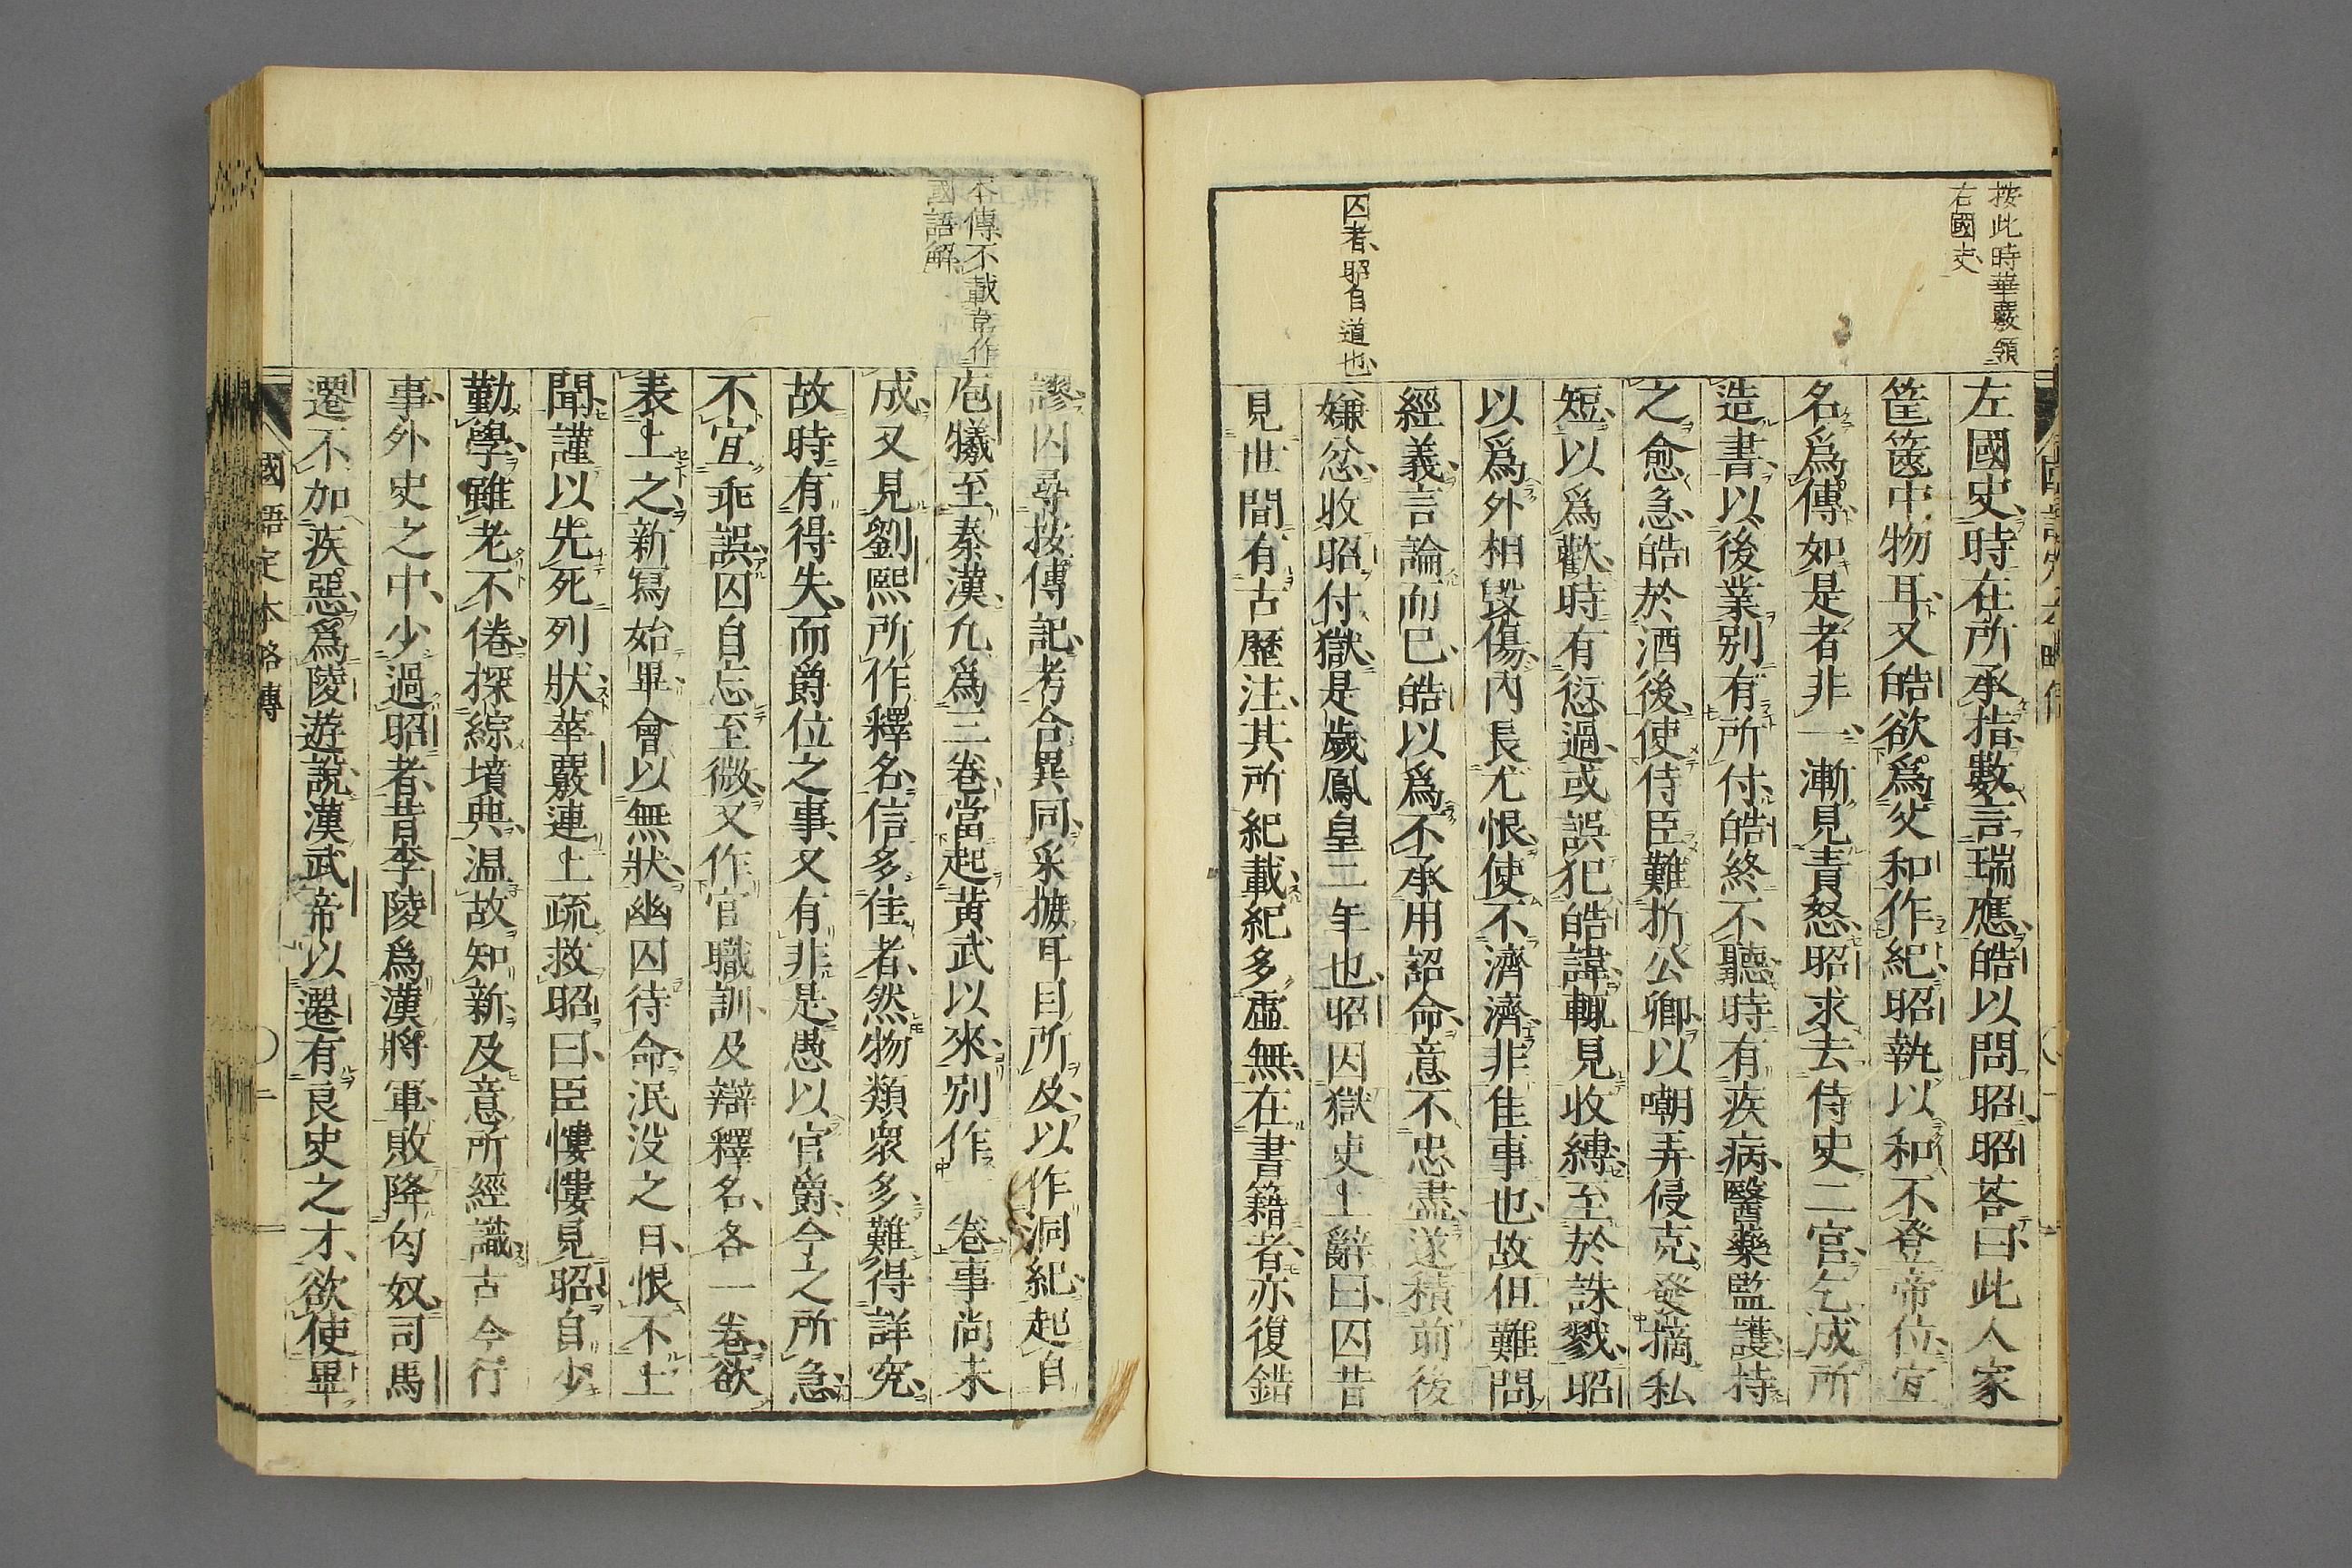 按此時華覈領
右國史
左國史時在所承指數言瑞應皓以問昭昭荅曰此人家
筐篋中物耳又皓欲爲父和作紀昭執以和不登帝位宜
名爲傳如是者非一漸見責怒昭求去侍史二官乞成所
造書以後業別有所付皓終不聽時有疾病醫藥監護持
之愈急皓於酒後使侍臣難折公卿以嘲弄侵克發摘私
短以爲歡時有愆過或誤犯皓諱輒見收縛至於誅戮昭
以爲外相毀傷內長尤恨使不濟濟非佳事也故但難問
經義言論而已皓以爲不承用詔命意不忠盡遂積前後
囚者昭自道也
嫌忿收昭付獄是歲鳳皇二年也昭囚獄吏上辭曰囚昔
見世間有古歷注其所紀載紀多虛無在書籍者亦復錯
謬囚尋按傳記考合異同采摭耳目所及以作洞紀起自
本傳不載韋作
國語解
庖犧至秦漢凡爲三卷當起黃武以來別作 卷事尚未
成又見劉熙所作釋名信多佳者然物類衆多難得詳究
故時有得失而爵位之事又有非是愚以官爵今之所急
不宜乖誤囚自忘至微又作官職訓及辯釋名各一卷欲
表上之新寫始畢會以無狀幽囚待命泯没之日恨不上
聞謹以先死列狀華覈連上疏救昭曰臣慺慺見昭自少
勤學雖老不倦探綜墳典温故知新及意所經識古今行
事外史之中少過昭者昔李陵爲漢將軍敗降匈奴司馬
遷不加疾惡爲陵遊說漢武帝以遷有良史之才欲使畢
國語定本略傳
二